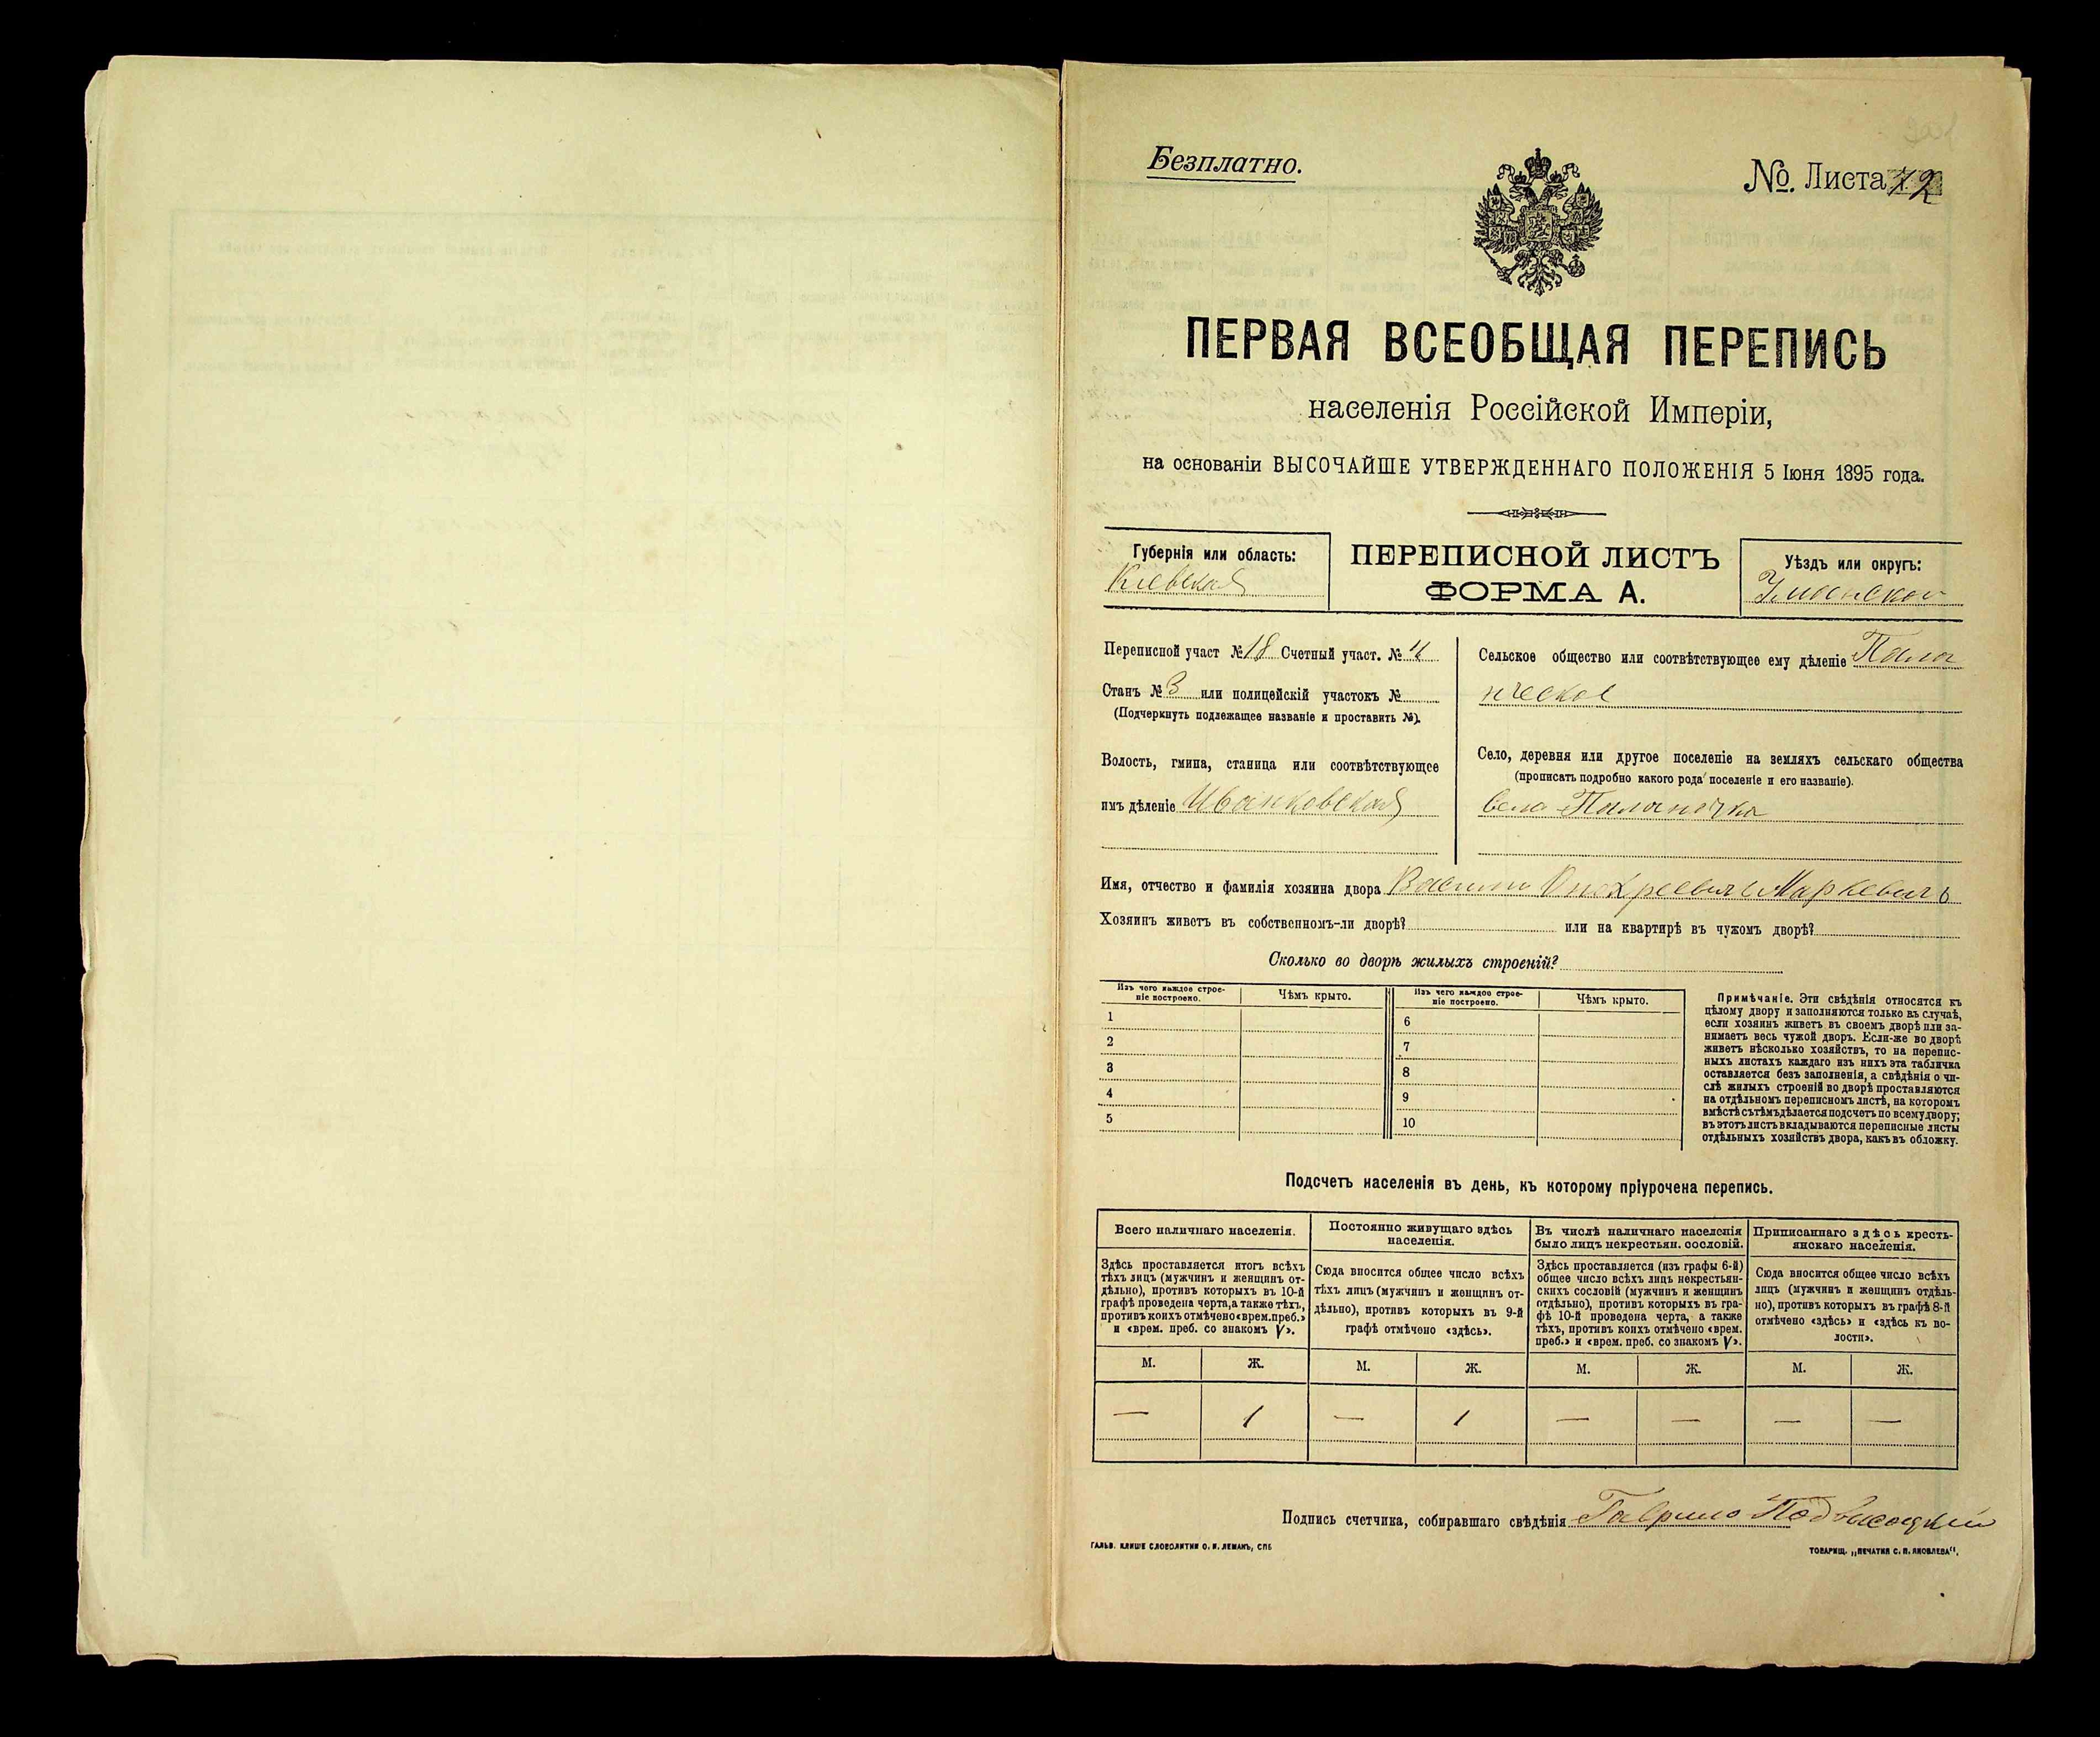 Безплатно.
№. Листа 72
ПЕРВАЯ ВСЕОБЩАЯ ПЕРЕПИСЬ
населенія Россійской Имперіи,
на основаніи ВЫСОЧАЙШЕ УТВЕРЖДЕННАГО ПОЛОЖЕНІЯ 5 Іюня 1895 года.
Губернія или область:
Кіевская
ПЕРЕПИСНОЙ ЛИСТЪ
ФОРМА А.
Уѣздъ или округъ:
Переписной участ № 18 Счетный участ. № 4
Станъ № 3 или полицейскій участокъ №
(Подчеркнуть подлежащее названіе и проставить №).
Волость, гмина, станица или соотвѣтствующее
имъ дѣленіе Иваньковская
Сельское общество или соотвѣтствующее ему дѣленіе Палан
ческое
Село, деревня или другое поселеніе на земляхъ сельскаго общества
(прописать подробно какого рода поселеніе и его названіе).
село Паланочка
Имя, отчество и фамилія хозяина двора Василій Маркевичъ
Хозяинъ живетъ въ собственномъ-ли дворѣ? или на квартирѣ въ чужомъ дворѣ?
Сколько во дворѣ жилыхъ строеній?
Изъ чего каждое строе-
ніе построено.
Чѣмъ крыто.
Изъ чего каждое строе-
ніе построено.
Чѣмъ крыто.
1
2
3
4
5
6
7
8
9
10
Примѣчаніе. Эти свѣдѣнія относятся къ
цѣлому двору и заполняются только въ случаѣ,
если хозяинъ живетъ въ своемъ дворѣ или за-
нимаетъ весь чужой дворъ. Если-же во дворѣ
живетъ нѣсколько хозяйствъ, то на перепис-
ныхъ листахъ каждаго изъ нихъ эта табличка
оставляется безъ заполненія, а свѣдѣнія о чи-
слѣ жилыхъ строеній во дворѣ проставляются
на отдѣльномъ переписномъ листѣ, на которомъ
вмѣстѣ съ тѣмъ дѣлается подсчетъ по всему двору;
въ этотъ листъ вкладываются переписные листы
отдѣльныхъ хозяйствъ двора, какъ въ обложку.
Подсчетъ населенія въ день, къ которому пріурочена перепись.
Всего наличнаго населенія.
Постоянно живущаго здѣсь
населенія.
Въ числѣ наличнаго населенія
было лицъ некрестьян. сословій.
Приписаннаго здѣсь кресть-
янскаго населенія.
Здѣсь проставляется итогъ всѣхъ
тѣхъ лицъ (мужчинъ и женщинъ от-
дѣльно), противъ которыхъ въ 10-й
графѣ проведена черта, а также тѣхъ,
противъ коихъ отмѣчено «врем. преб.»
и «врем. преб. со знакомъ V».
Сюда вносится общее число всѣхъ
тѣхъ лицъ (мужчинъ и женщинъ от-
дѣльно), противъ которыхъ въ 9-й
графѣ отмѣчено «здѣсь».
Здѣсь проставляется (изъ графы 6-й)
общее число всѣхъ лицъ некрестьян-
скихъ сословій (мужчинъ и женщинъ
отдѣльно), противъ которыхъ въ гра-
фѣ 10-й проведена черта, а также
тѣхъ, противъ коихъ отмѣчено «врем.
преб.» и «врем. преб. со знакомъ V».
Сюда вносится общее число всѣхъ
лицъ (мужчинъ и женщинъ отдѣль-
но), противъ которыхъ въ графѣ 8-й
отмѣчено «здѣсь» и «здѣсь къ во-
лости».
М. Ж. М. Ж. М. Ж. М. Ж.
— 1 — 1 — — — —
Подпись счетчика, собиравшаго свѣдѣнія Гаврило Подвысоцкій
ГАЛЬВ. КЛИШЕ СЛОВОЛИТНИ О. И. ЛЕМАНЪ, СПБ
ТОВАРИЩ. „ПЕЧАТНЯ С. П. ЯКОВЛЕВА“.